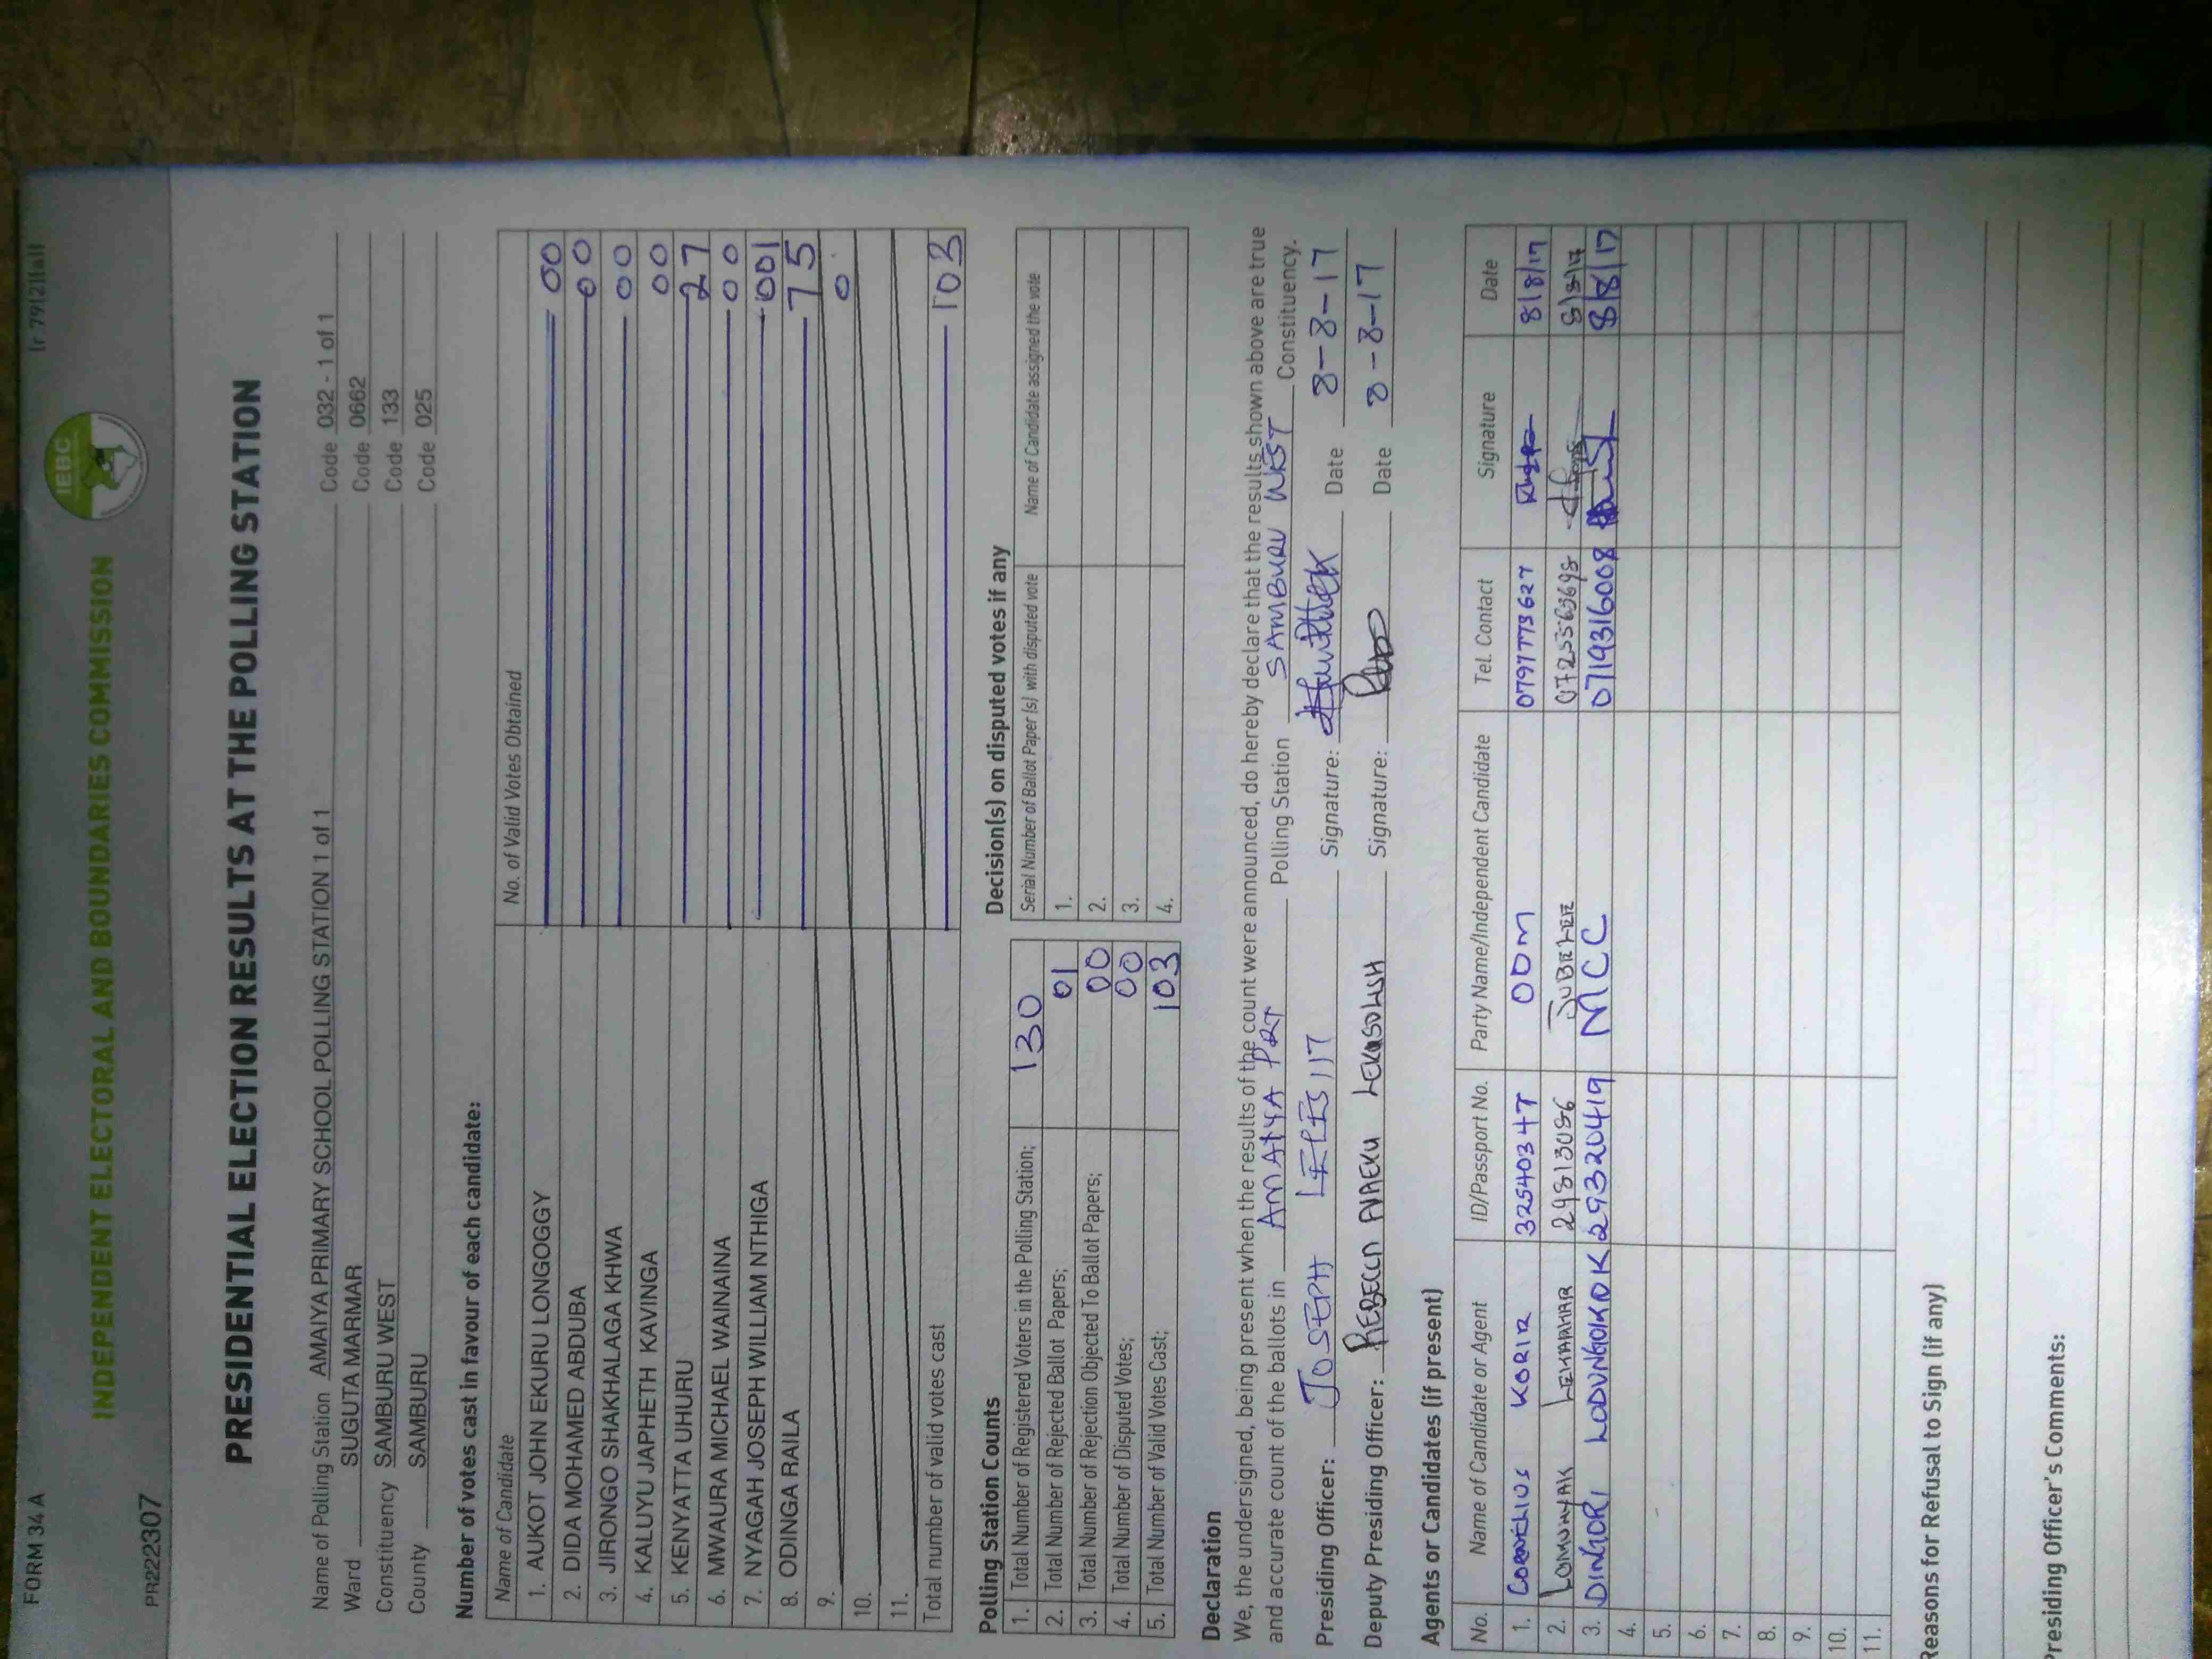 FORM 34 A
(r 79(2)(a))
IEBC
INDEPENDENT ELECTORAL AND BOUNDARIES COMMISSION
PR222307
PRESIDENTIAL ELECTION RESULTS AT THE POLLING STATION
Name of Polling Station AMAIYA PRIMARY SCHOOL POLLING STATION 1 of 1 Code 032 - 1 of 1
Ward SUGUTA MARMAR Code 0662
Constituency SAMBURU WEST Code 133
County SAMBURU Code 025
Number of votes cast in favour of each candidate:
Name of Candidate No. of Valid Votes Obtained
1. AUKOT JOHN EKURU LONGOGGY 00
2. DIDA MOHAMED ABDUBA 00
3. JIRONGO SHAKHALAGA KHWA 00
4. KALUYU JAPHETH KAVINGA 00
5. KENYATTA UHURU 27
6. MWAURA MICHAEL WAINAINA 00
7. NYAGAH JOSEPH WILLIAM NTHIGA 001
8. ODINGA RAILA 75
9. 0
10.
11.
Total number of valid votes cast 103
Polling Station Counts
1. Total Number of Registered Voters in the Polling Station; 130
2. Total Number of Rejected Ballot Papers; 01
3. Total Number of Rejection Objected To Ballot Papers; 00
4. Total Number of Disputed Votes; 00
5. Total Number of Valid Votes Cast; 103
Decision(s) on disputed votes if any
Serial Number of Ballot Paper (s) with disputed vote Name of Candidate assigned the vote
1.
2.
3.
4.
Declaration
We, the undersigned, being present when the results of the count were announced, do hereby declare that the results shown above are true
and accurate count of the ballots in AMAIYA PRI Polling Station SAMBURU WEST Constituency.
Presiding Officer: JOSEPH Signature: Date 8-8-17
Deputy Presiding Officer: REBECCA Signature: Date 8-8-17
Agents or Candidates (if present)
No. Name of Candidate or Agent ID/Passport No. Party Name/Independent Candidate Tel. Contact Signature Date
1. KORIR 32540347 ODM 0797773627 8/8/17
2. 29813086 JUBILEE 8/8/17
3. DINGORI 29320419 MCC 0719316008 8/8/17
4.
5.
6.
7.
8.
9.
10.
11.
Reasons for Refusal to Sign (if any)
Presiding Officer's Comments: